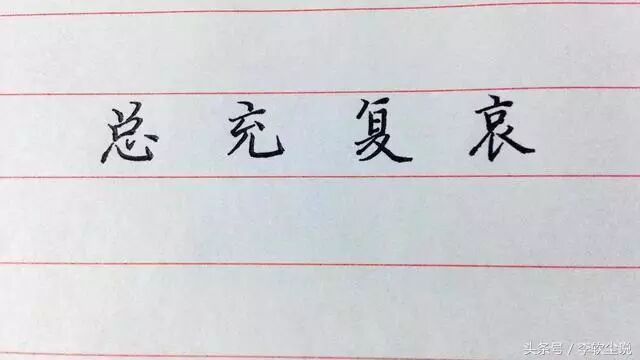 总充复哀
头条号／李软尘说